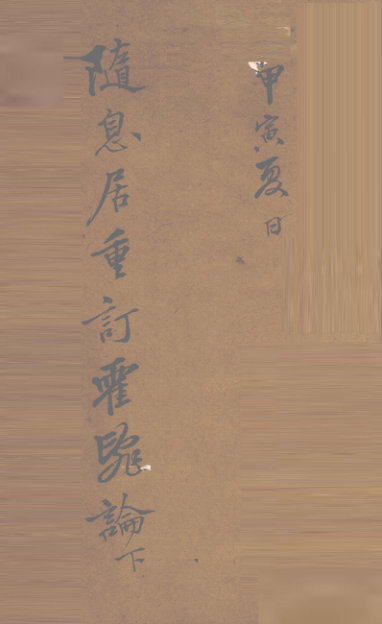 甲寅夏日
隨息居重訂霍亂論下